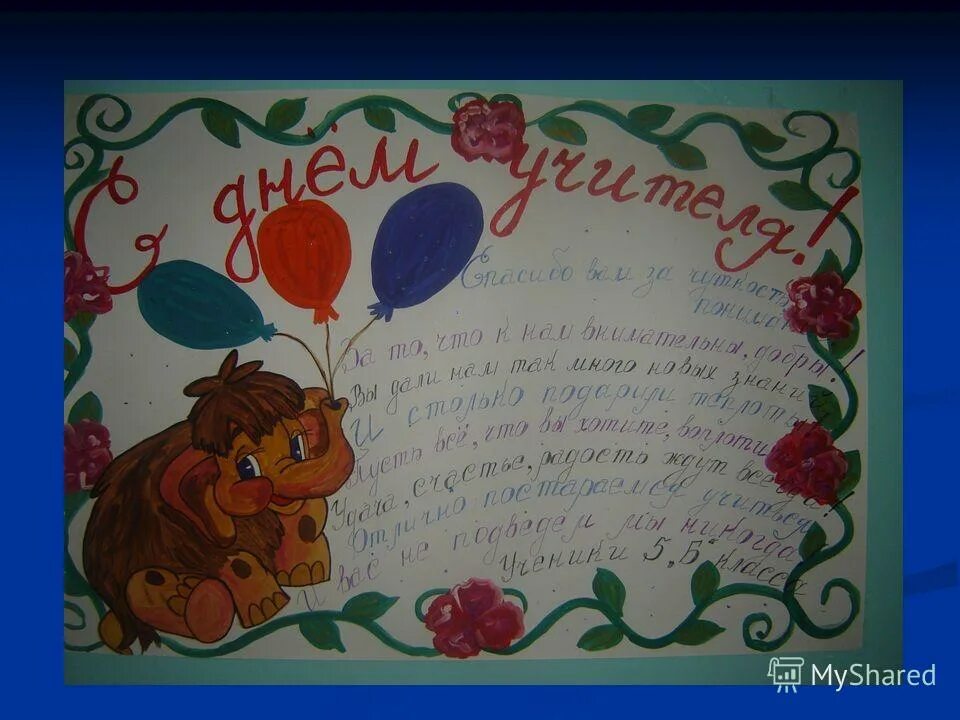 С днём учителя!
Спасибо вам за чуткость
понима
За то, что к нам внимательны, добры!
Вы дали нам так много новых знаний
И столько подарили теплоты!
Пусть всё, что вы хотите, воплоти
Удача, счастье, радость ждут всегда!
Отлично постараемся учиться
И вас не подведём мы никогда
Ученики 5 „Б" класса
MyShared